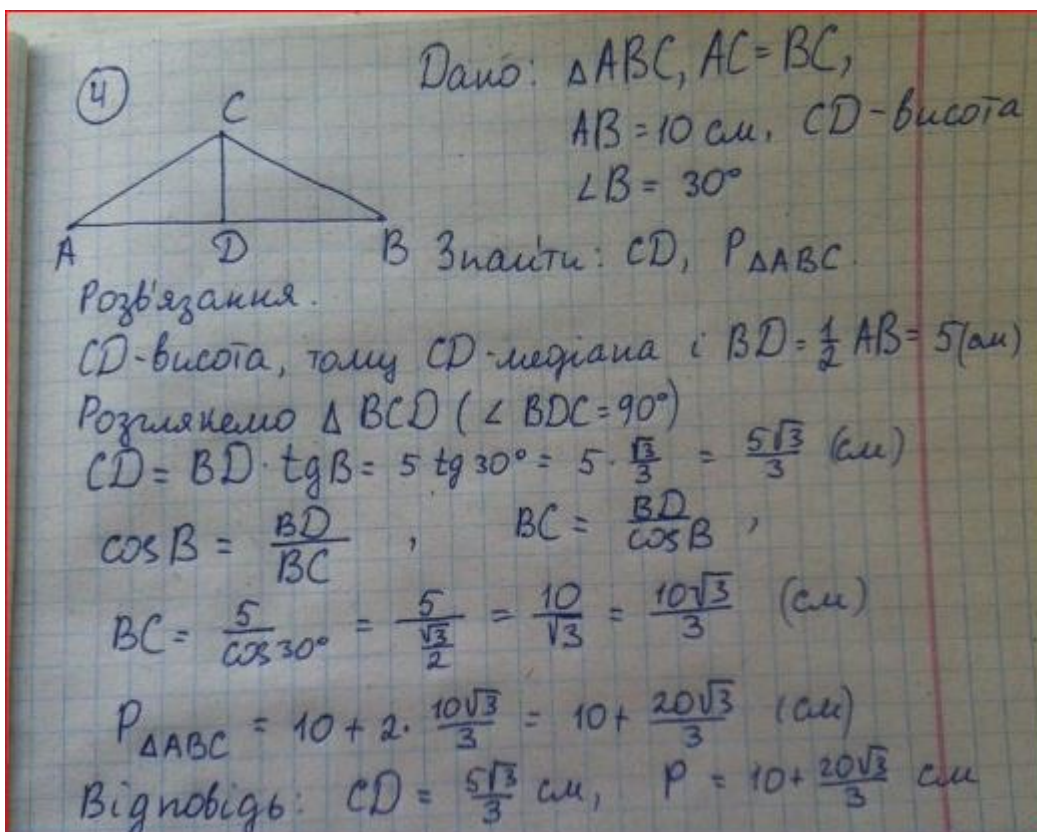 4
Дано: ΔABC, AC = BC,
AB = 10 см, CD - висота
∠B = 30°
C
A D B
Знайти: CD, P ΔABC.
Розв'язання.
CD - висота, тому CD - медіана і BD = 1/2 AB = 5 (см)
Розглянемо Δ BCD (∠ BDC = 90°)
CD = BD · tg B = 5 tg 30° = 5 · √3/3 = 5√3/3 (см)
cos B = BD/BC , BC = BD/cos B ,
BC = 5/cos 30° = 5/(√3/2) = 10/√3 = 10√3/3 (см)
P ΔABC = 10 + 2 · 10√3/3 = 10 + 20√3/3 (см)
Відповідь: CD = 5√3/3 см, P = 10 + 20√3/3 см